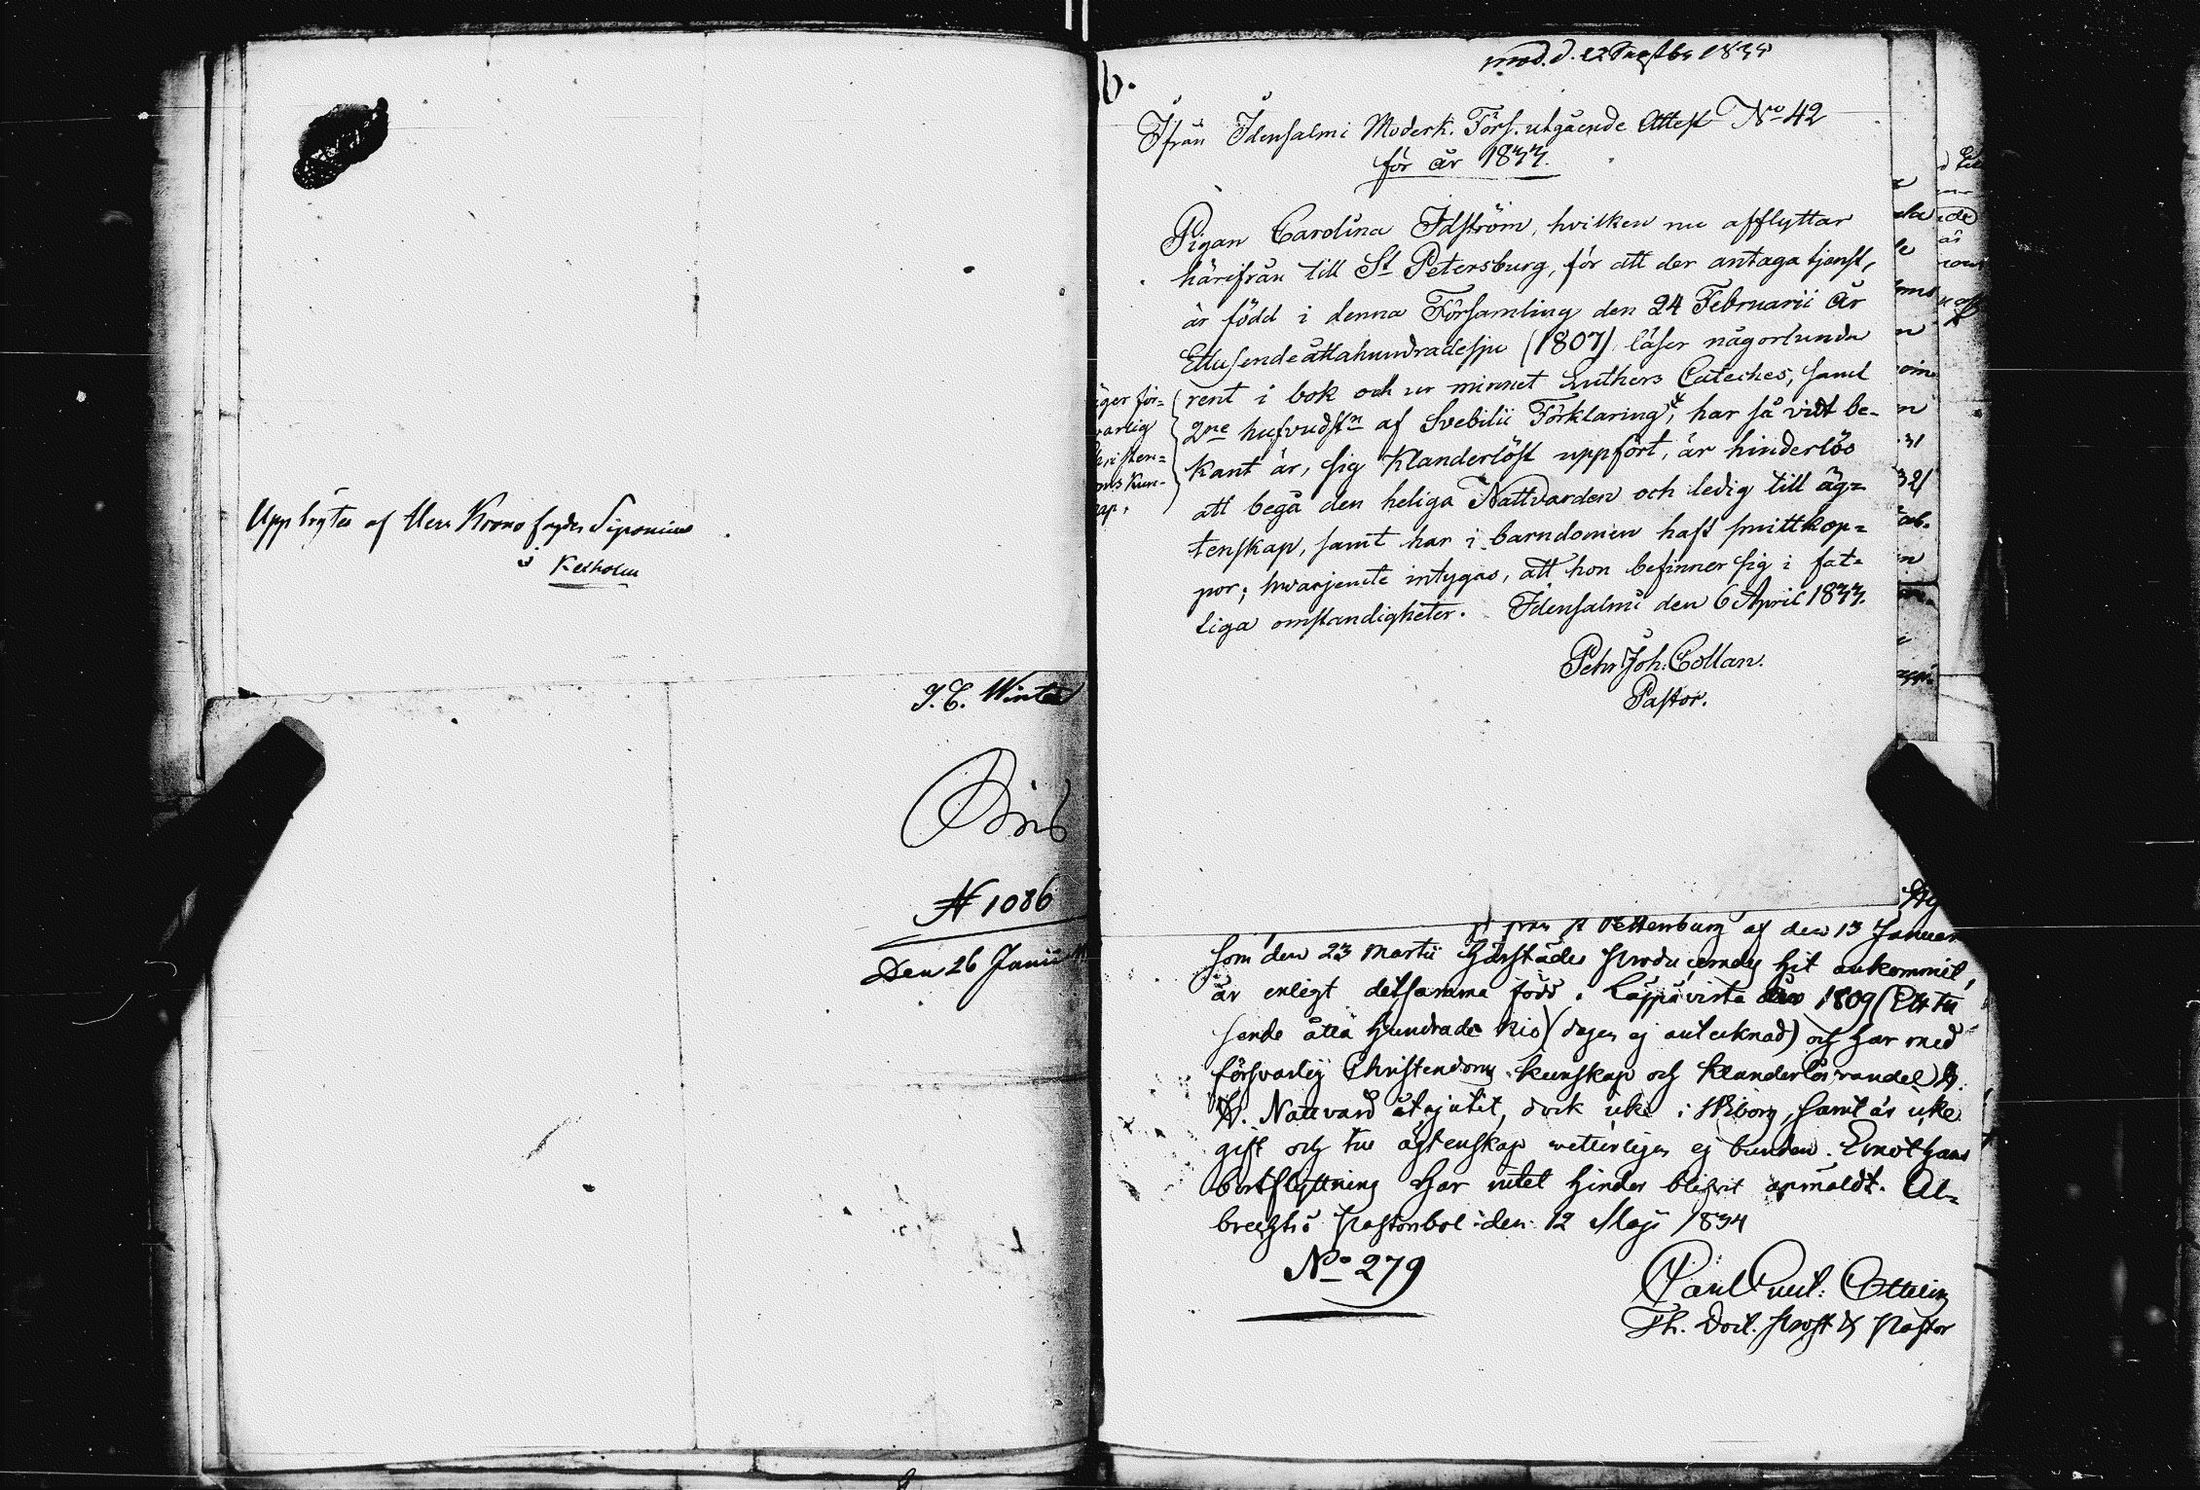 Uppbrytes af Herr Kronofogden Siponius
i Kexholm
J. C. Winter
N 1086
Den 26 Junii
b.
Ifrån Idensalmi Moderk. Förs. utgående Attest No 42
för år 1833.
Pigan Carolina Idström, hvilken nu afflyttar
härifrån till St Petersburg, för att der antaga tjenst,
är född i denna Församling den 24 Februarii År
Ettusendeåttahundradesju (1807) läser någorlunda
rent i bok och ur minnet Luthers Cateches, samt
2ne hufvudstn af Svebilii Förklaring, har så vidt be-
kant är, sig klanderlöst uppfört, är hinderlös
att begå den heliga Nattvarden och ledig till äg-
tenskap, samt har i barndomen haft smittkop-
por; hvarjemte intygas, att hon befinner sig i fat-
tiga omständigheter. Idensalmi den 6 April 1833.
Pehr Joh: Collan.
Pastor.
äger för-
svarlig
Christen-
doms kun-
skap,
Pettersburg af den 13 Januari
som den 23 Martii härstädes producerades hit ankommit,
är enligt detsamma född i Läppävirta 1809 (Ett tu
sende åtta hundrade nio) (dagen ej antecknad) och har med
försvarlig Christendoms kunskap och klanderlös vandel
H. Nattvard åtnjutit, dock icke i Wiborg, samt är icke
gift och till ägtenskap vetterligen ej bunden. Emot hans
bortflyttning har intet hinder blifvit anmäldt. Al-
brechtsi Pastorsbol den 12 Maji 1834
No 279
Carl Gust: Ottelin
Th. Doct. Prost & Pastor